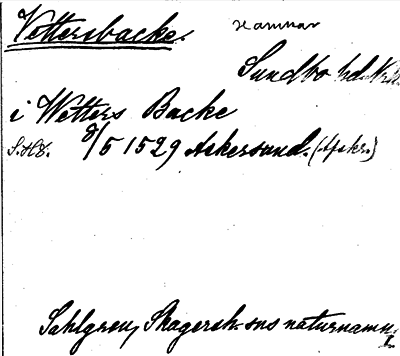 Vettersbacke. Hammar
Sundbo hd. Nrk.
i Wetters Backe
S.H.S. 8/5 1529 Askersund. (Afskr.)
Sahlgren, Skagersh-sns naturnamn:
I.